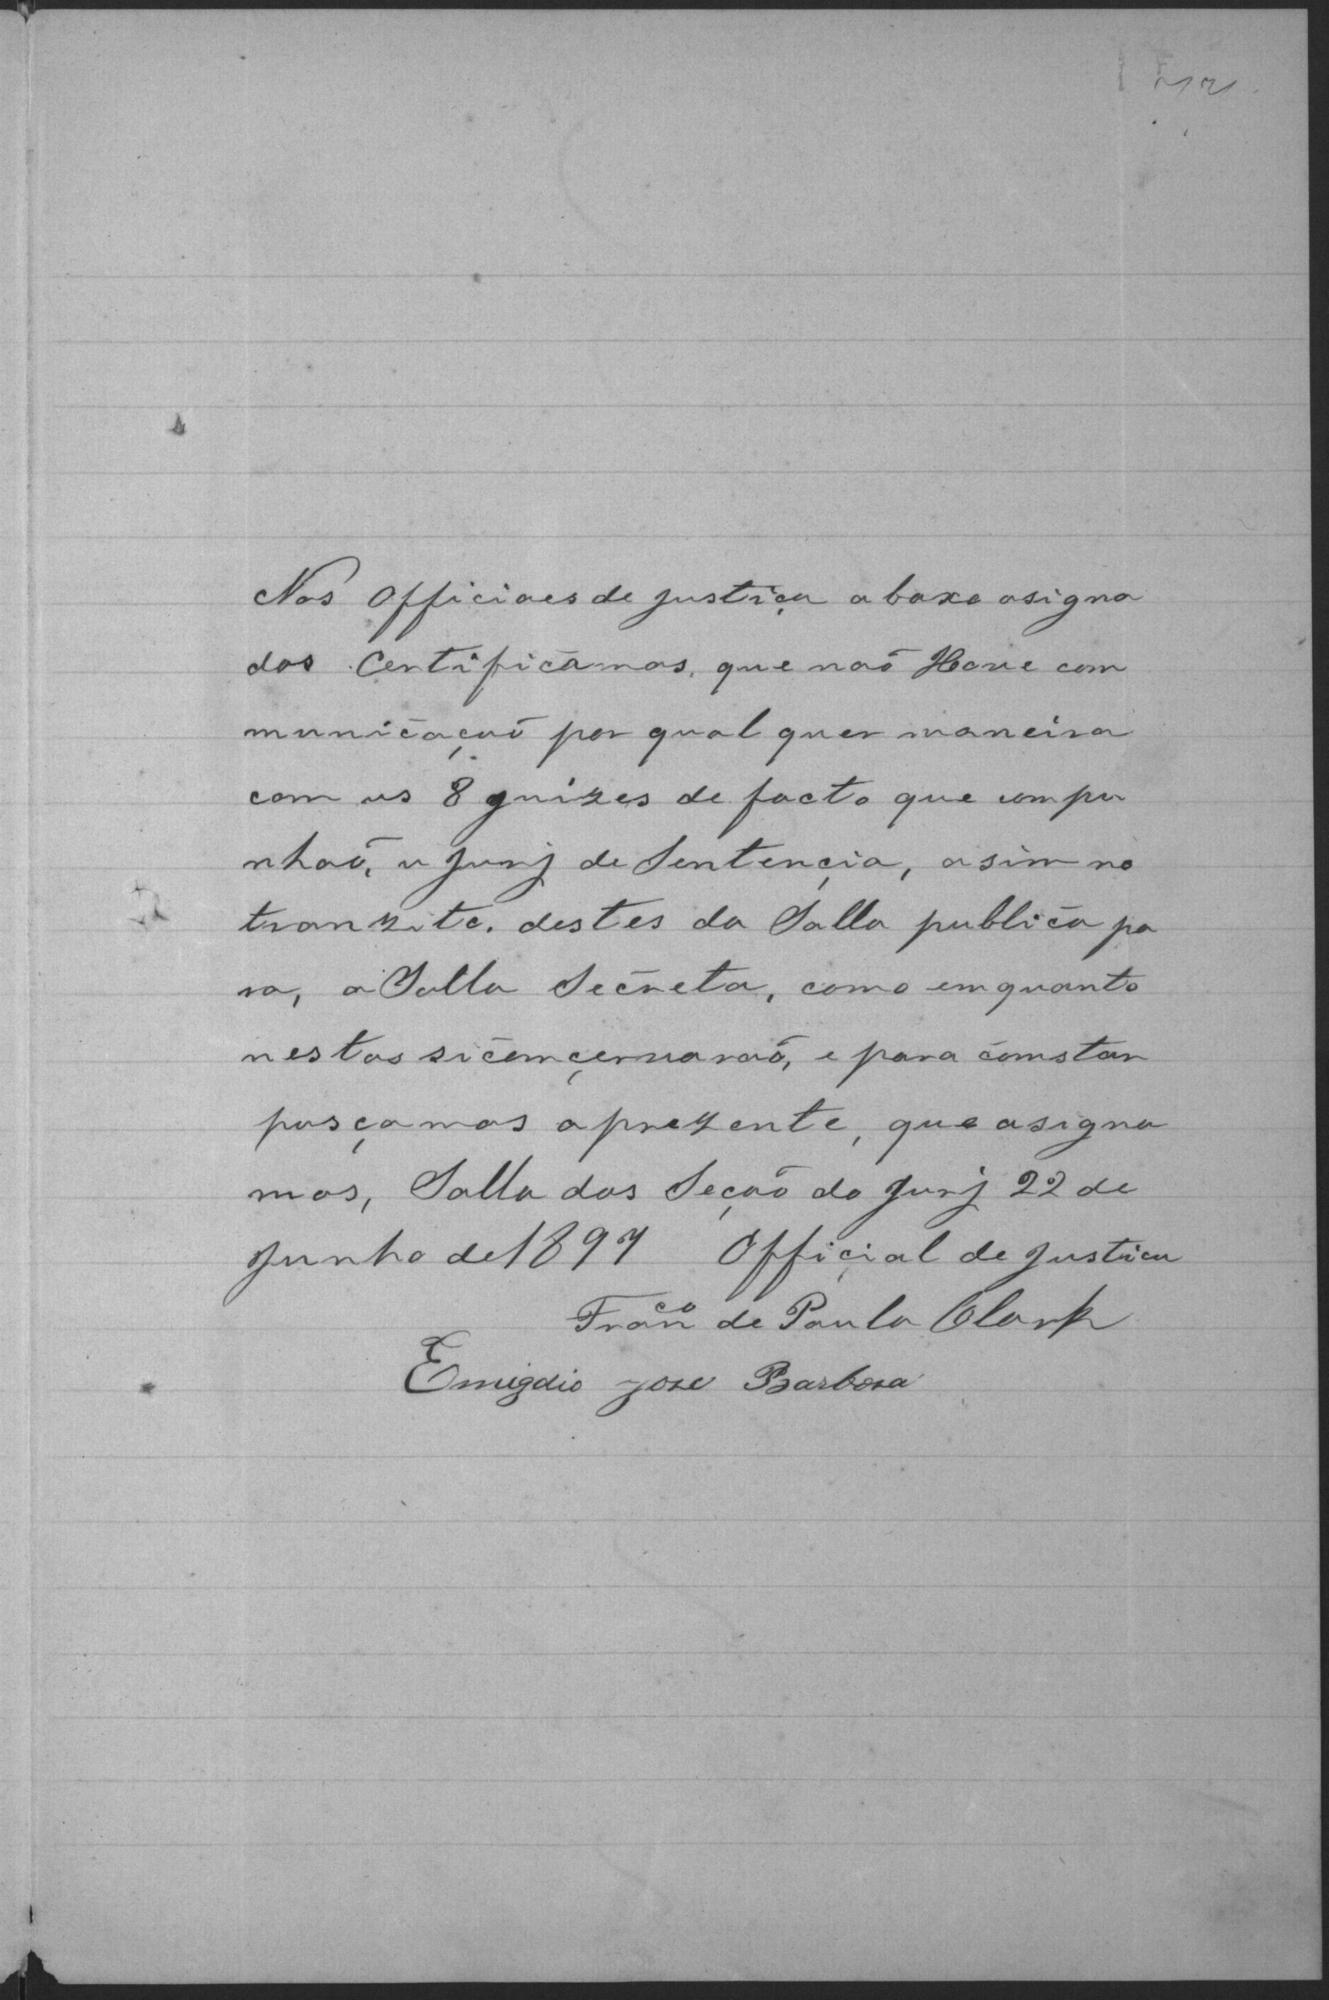 Nos Officiaes de justiça abaxo asigna
dos Certificamos, que naõ Hove com
municaçaõ por qual quer maneira
com us 8 guizes de facto que compu
nhaõ, u Jurj de Sentençia, asim no
tranzito. destes da Salla publica pa
ra, a Salla Secreta, como emquanto
nestas si comçervaraõ, e para comstar
pasçamos aprezente, que asigna
mos, Salla das Seçaõ do Jurj 22 de
Junho de 1897 Offiçial de Justica
Fran.co de Paula Clark
Emigdio Jose Barbosa